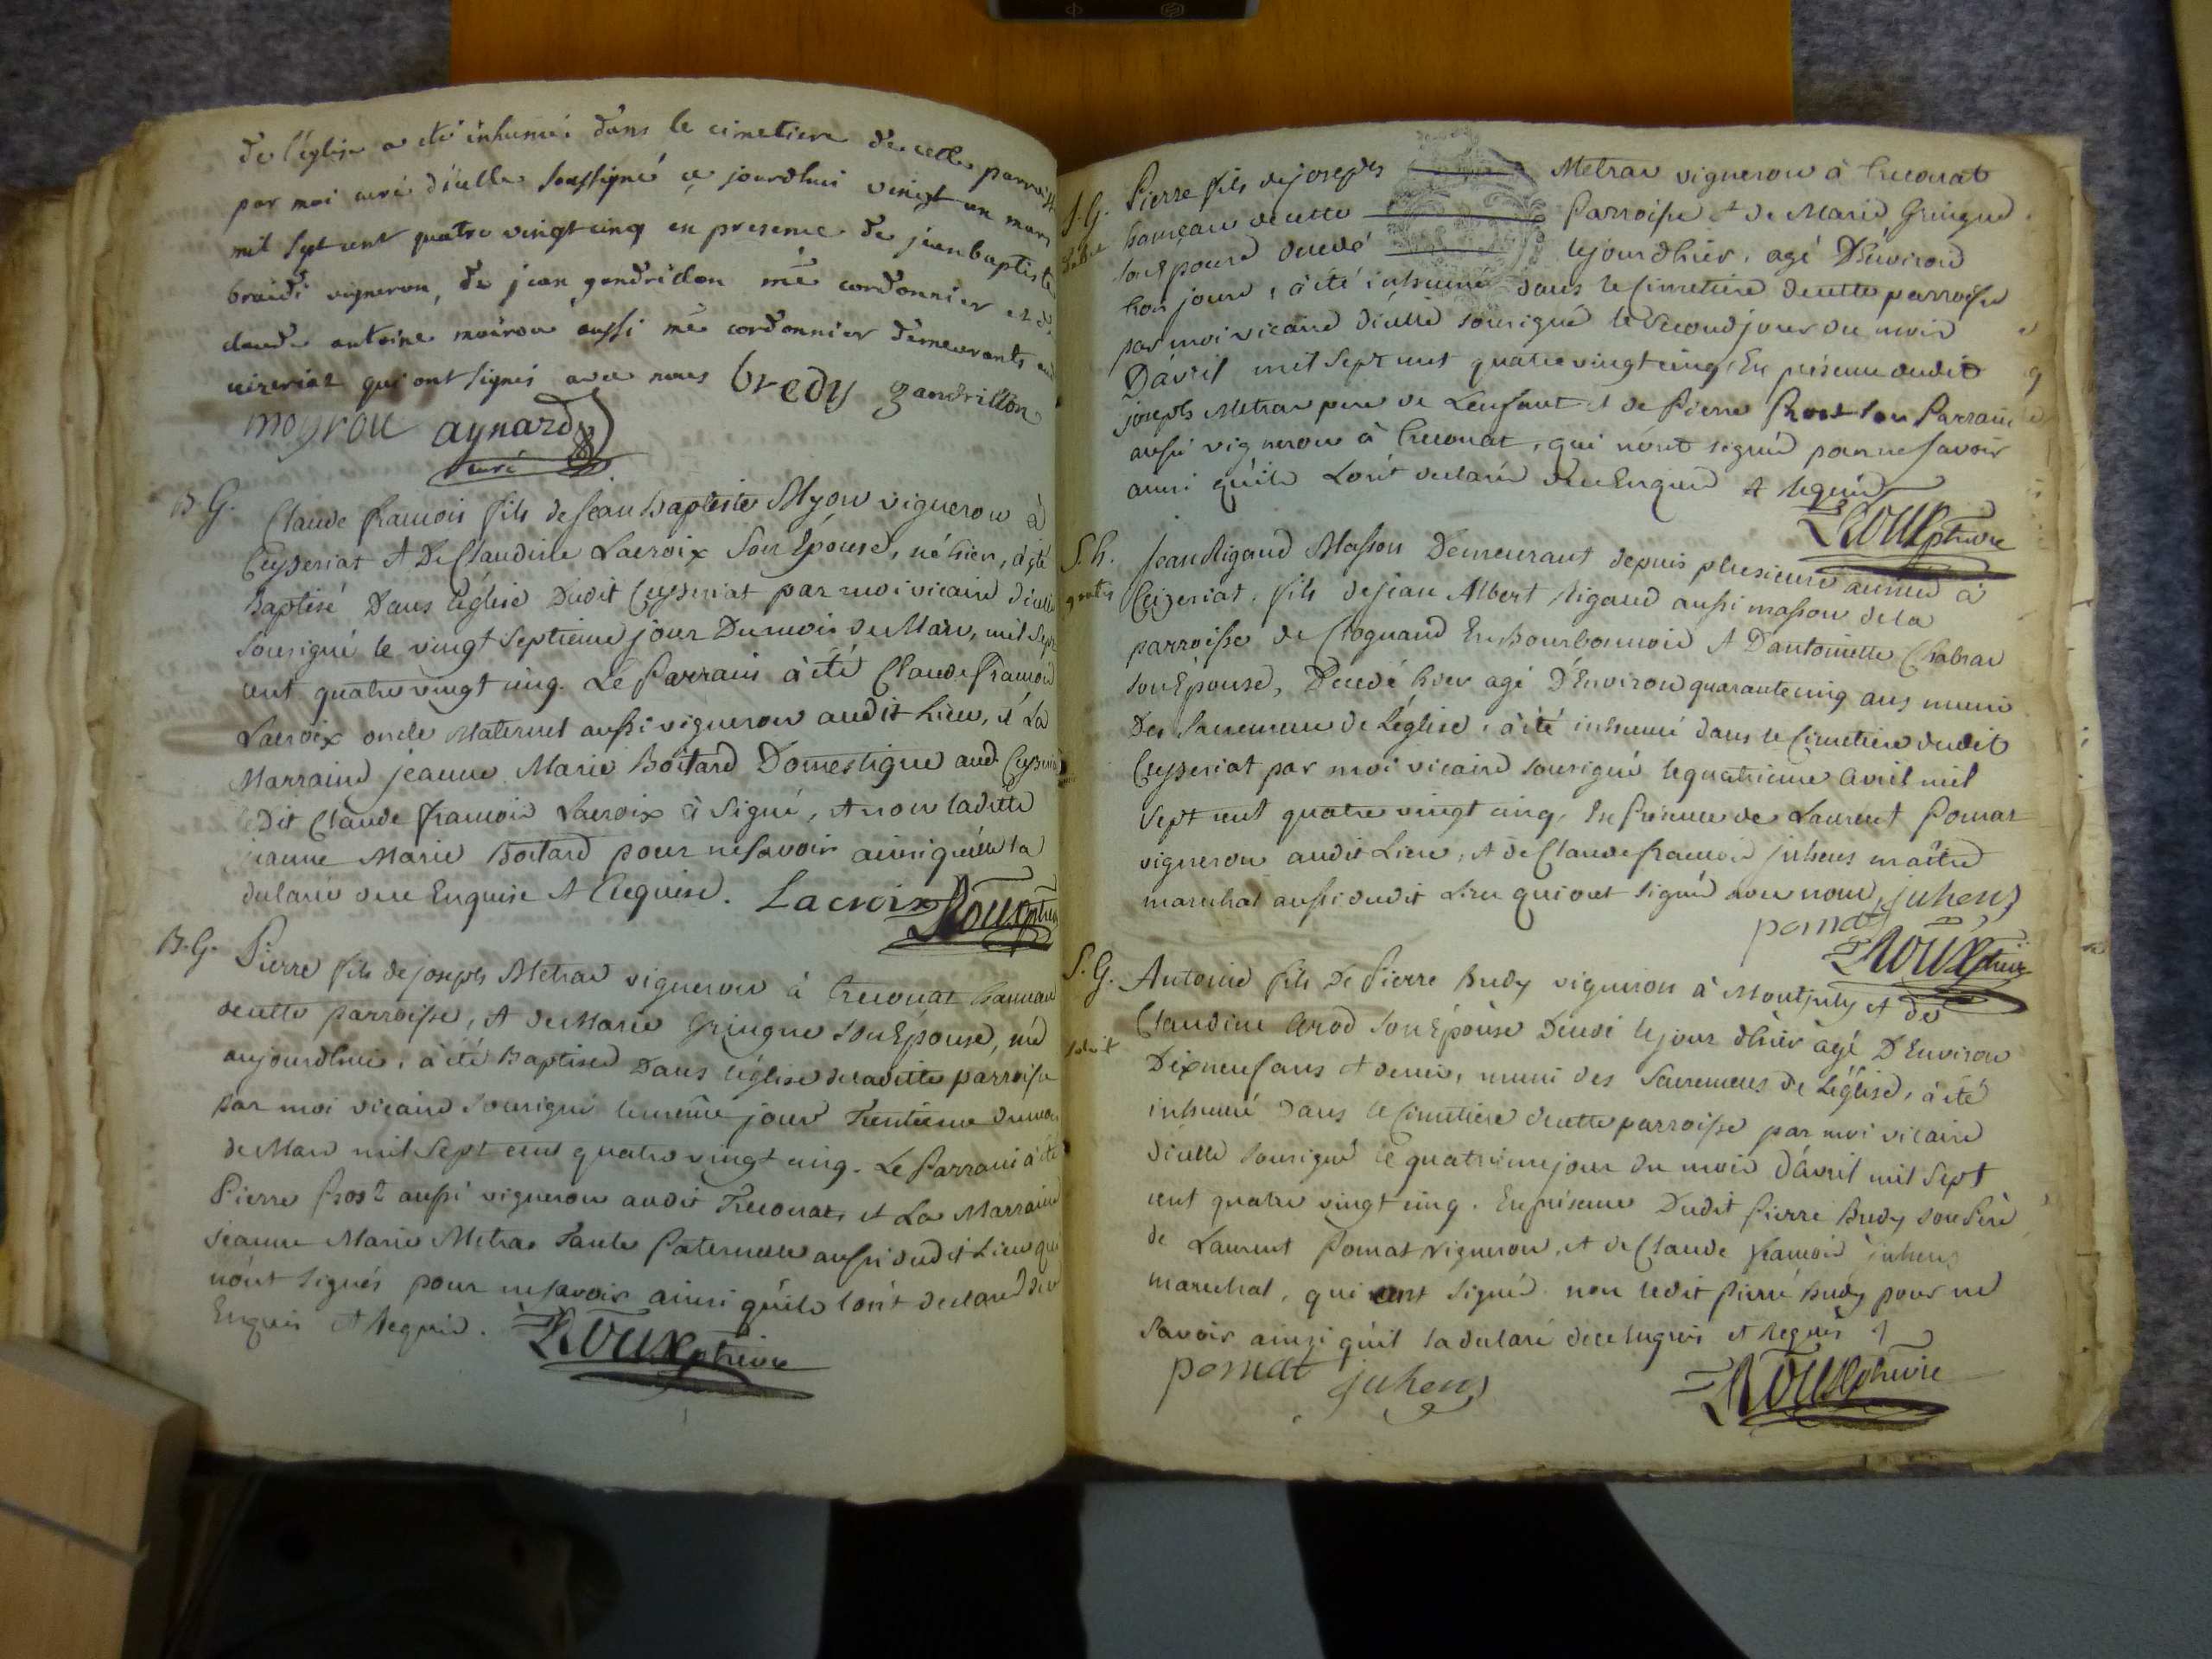 de l'église a eté inhumée dans le cimetiere de cette parroisse
par moi curé d'icelle soussigné ce jourdhui vingt un mars
mil sept cent quatre vingt cinq en presence de jean baptiste
braidi vigneron, de jean gendrillon mè cordonnier et de
claude antoine moirou aussi mè cordonnier demeurants au
qui ont signés avec nous bredy gandrillon
moyrou aynard
curé
B. G.
Claude francois fils de Jean Baptiste Myon vigneron à
Ceyseriat & De Claudine Lacroix Son Épouse, né hier, à été
Baptisé Dans L'église Dudit Ceyseriat par moi vicaire d'icelle
Sousigné le vingt septieme jour Du mois de Mars, mil Sept
cent quatre vingt cinq. Le Parrain à été Claude francois
Lacroix oncle Maternel aussi vigneron audit Lieu, & La
Marraine jeanne Marie Boitard Domestique aud. Ceyseriat
Dit Claude francois Lacroix à Signé, & non ladite
jeanne Marie Boitard pour ne savoir ainsi qu'elle la
declaré de ce Enquise & Requise. Lacroix Roux ptre vic
B. G.
Pierre fils de joseph Metras vigneron à Treconat hameau
de cette parroisse, & de Marie Gringue son Épouse, né
aujourdhui, à été Baptisé Dans l'église de ladite parroisse
par moi vicaire sousigné le même jour Trentieme du mois
de Mars mil Sept cent quatre vingt cinq. Le Parrain à été
Pierre Prost aussi vigneron audit Treconat, et La Marraine
jeanne Marie Metras Tante Paternelle aussi dudit Lieu qui
n'ont signés pour ne savoir ainsi qu'ils l'ont declaré de ce
Enquis & Requis. Roux ptre vic
S. G.
Pierre fils de joseph Metras vigneron à Treconat
hameau de cette Parroisse & de Marie Gringue
son Epouse decedé le jour d'hier, agé D'Environ
trois jours, à été inhumé dans le Cimetiere de cette parroisse
par moi vicaire d'icelle sousigné le Second jour du mois
D'avril mil sept cent quatre vingt cinq, En présence dudit
joseph Metras pere de L'enfant & de Pierre Prost son Parrain
aussi vigneron à Treconat, qui n'ont signés pour ne savoir
ainsi qu'ils L'ont declaré de ce Enquis & Requis
Roux ptre vic
S. h.
gratis
Jean Rigaud Masson Demeurant depuis plusieurs années à
Ceizeriat, fils de jean Albert Rigaud aussi masson de la
parroisse de En Bourbonnois & D'antoinette Chabrar
son Épouse, Decedé hier agé D'Environ quarante cinq ans muni
Des Sacremens de L'église, à été inhumé dans le Cimetiere dudit
Ceyseriat par moi vicaire sousigné le quatrieme avril mil
Sept cent quatre vingt cinq, En présence de Laurent Pomat
vigneron audit Lieu, & de Claude francois juhens maître
marechal aussi dudit Lieu qui ont signés avec nous, juhens
pomat
Roux ptre vic
S. G.
Antoine fils de Pierre Bredy vigneron à Montjuly & de
Claudine Arod son Épouse Decedé le jour d'hier agé D'Environ
Dix neuf ans & demi, muni des Sacremens de L'église, à été
inhumé dans le Cimetiere de cette parroisse par moi vicaire
d'icelle sousigné le quatrieme jour du mois d'avril mil sept
cent quatre vingt cinq. En présence Dudit Pierre Bredy son Père
de Laurent Pomat vigneron, & de Claude francois juhens
marechal, qui ont signé. non ledit pierre bredy pour ne
Savoir ainsi qu'il la declaré de ce Enquis et Requis
pomat juhens
Roux ptre vic